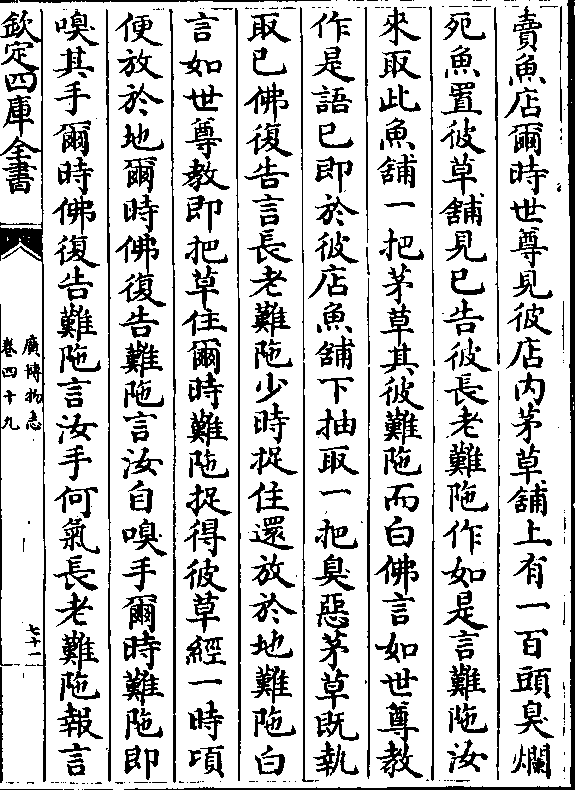 賣魚店爾時世尊見彼店內茅草舖上有一百頭臭爛
死魚置彼草舖見已告彼長老難陁作如是言難陁汝
來取此魚舖一把茅草其彼難陁而白佛言如世尊教
作是語已即於彼店魚舖下抽取一把臭惡茅草既執
取已佛復告言長老難陁少時捉住還放於地難陁白
言如世尊教即把草住爾時難陁捉得彼草經一時頃
便放於地爾時佛復告難陁言汝自嗅手爾時難陁即
嗅其手爾時佛復告難陁言汝手何氣長老難陁報言
欽定四庫全書
廣博物志
卷四十九
七十二